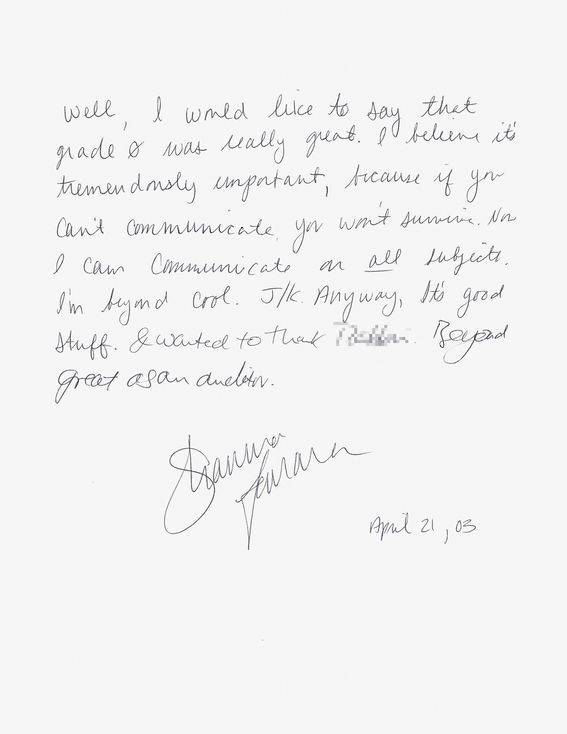 Well, I would like to say that
grade 0 was really great. I believe it's
tremendously important, because if you
can't communicate, you won't survive. Now
I can communicate on all subjects.
I'm beyond cool. J/K. Anyway, It's good
stuff. I wanted to thank Beyond
great as an auditor.
April 21, 03